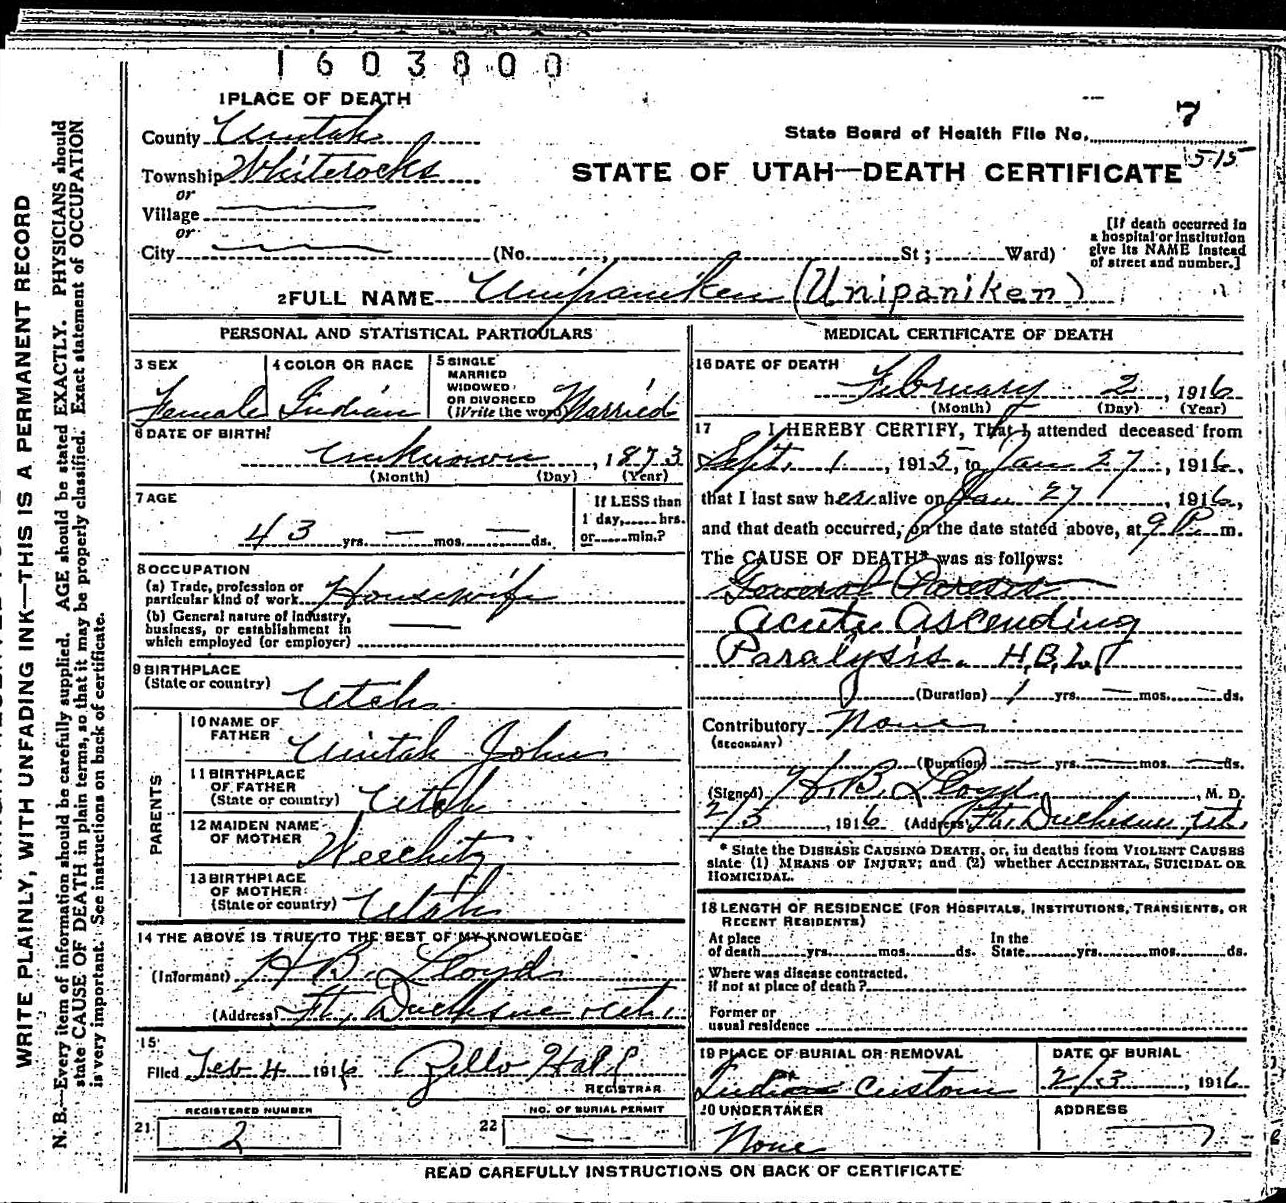 1603800
1 PLACE OF DEATH
County Uintah
Township Whiterocks
or
Village
or
City
State Board of Health File No. 7
515
STATE OF UTAH—DEATH CERTIFICATE
(No. , St; Ward)
[If death occurred in
a hospital or institution
give its NAME instead
of street and number.]
2 FULL NAME Unipaniken (Unipaniken)
PERSONAL AND STATISTICAL PARTICULARS
3 SEX
Female
4 COLOR OR RACE
Indian
5 SINGLE
MARRIED
WIDOWED
OR DIVORCED
(Write the word) Married
6 DATE OF BIRTH
Unknown , 1873
(Month) (Day) (Year)
7 AGE
43 yrs. — mos. — ds.
If LESS than
1 day, hrs.
or min.?
8 OCCUPATION
(a) Trade, profession or
particular kind of work Housewife
(b) General nature of industry,
business, or establishment in
which employed (or employer)
9 BIRTHPLACE
(State or country) Utah
PARENTS
10 NAME OF
FATHER Uintah John
11 BIRTHPLACE
OF FATHER
(State or country) Utah
12 MAIDEN NAME
OF MOTHER Weechitz
13 BIRTHPLACE
OF MOTHER
(State or country) Utah
14 THE ABOVE IS TRUE TO THE BEST OF MY KNOWLEDGE
(Informant) H. B. Lloyd
(Address) Ft. Duchesne Utah.
15
Filed Feb 4 1916 Zello Hall
REGISTRAR
REGISTERED NUMBER
21 2
NO. OF BURIAL PERMIT
22 —
MEDICAL CERTIFICATE OF DEATH
16 DATE OF DEATH
February 2 , 1916
(Month) (Day) (Year)
17 I HEREBY CERTIFY, That I attended deceased from
Sept. 1 , 1915, to Jan 27 , 1916,
that I last saw her alive on Jan 27 , 1916,
and that death occurred, on the date stated above, at 9 P. m.
The CAUSE OF DEATH* was as follows:
General Paresis
Acute Ascending
Paralysis. H.B.L.
(Duration) 1 yrs. — mos. — ds.
Contributory None
(SECONDARY)
(Duration) — yrs. — mos. — ds.
(Signed) H. B. Lloyd , M. D.
2/3 , 1916 (Address) Ft. Duchesne, Ut.
* State the DISEASE CAUSING DEATH, or, in deaths from VIOLENT CAUSES
state (1) MEANS OF INJURY; and (2) whether ACCIDENTAL, SUICIDAL OR
HOMICIDAL.
18 LENGTH OF RESIDENCE (FOR HOSPITALS, INSTITUTIONS, TRANSIENTS, OR
RECENT RESIDENTS)
At place
of death yrs. mos. ds.
In the
State yrs. mos. ds.
Where was disease contracted.
if not at place of death?
Former or
usual residence
19 PLACE OF BURIAL OR REMOVAL
Indian Custom
DATE OF BURIAL
2/3 , 1916
20 UNDERTAKER
None
ADDRESS
READ CAREFULLY INSTRUCTIONS ON BACK OF CERTIFICATE
WRITE PLAINLY, WITH UNFADING INK—THIS IS A PERMANENT RECORD
N. B.—Every item of information should be carefully supplied. AGE should be stated EXACTLY. PHYSICIANS should
state CAUSE OF DEATH in plain terms, so that it may be properly classified. Exact statement of OCCUPATION
is very important. See instructions on back of certificate.